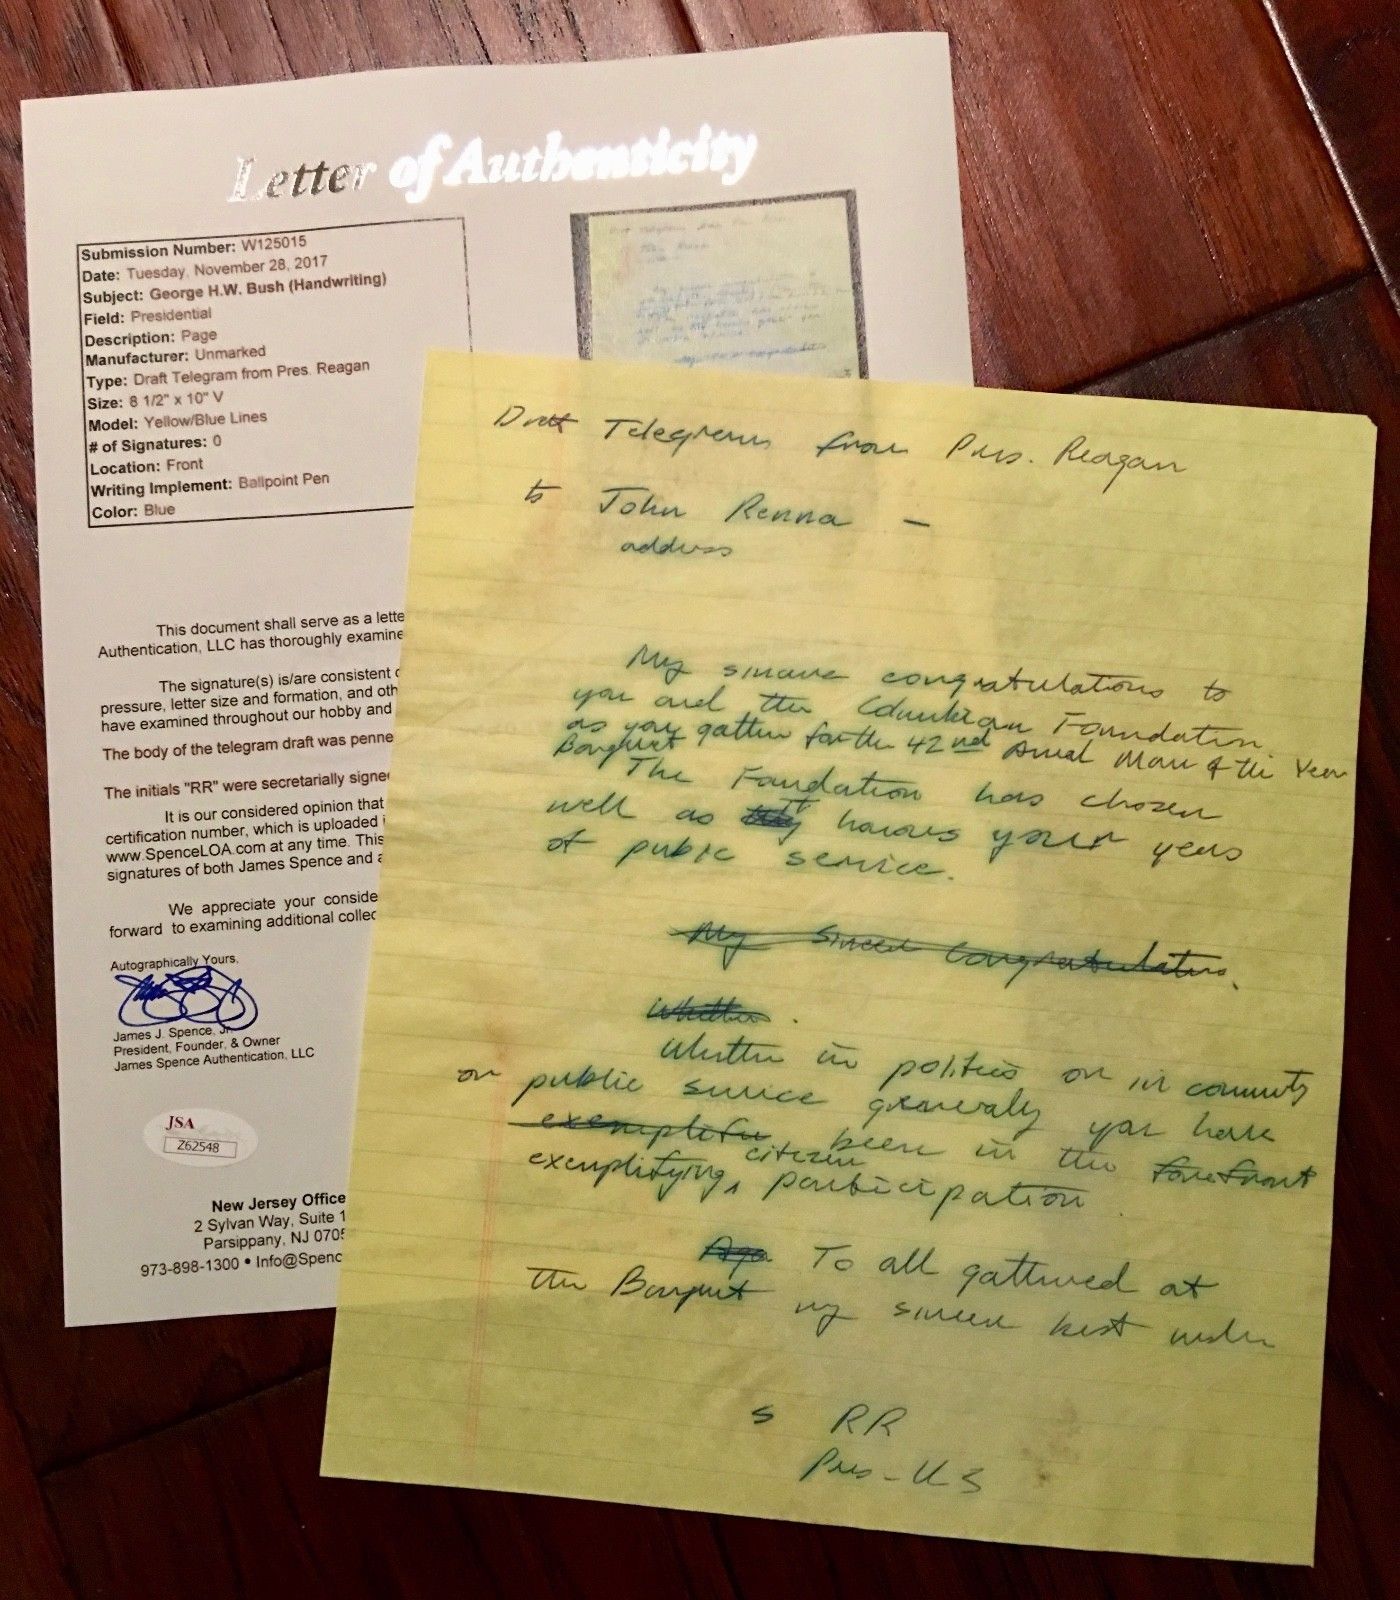 Letter of Authenticity
Submission Number: W125015
Date: Tuesday, November 28, 2017
Subject: George H.W. Bush (Handwriting)
Field: Presidential
Description: Page
Manufacturer: Unmarked
Type: Draft Telegram from Pres. Reagan
Size: 8 1/2" x 10" V
Model: Yellow/Blue Lines
# of Signatures: 0
Location: Front
Writing Implement: Ballpoint Pen
Color: Blue
This document shall serve as a lette
Authentication, LLC has thoroughly examine
The signature(s) is/are consistent
pressure, letter size and formation, and oth
have examined throughout our hobby and
The body of the telegram draft was penne
The initials "RR" were secretarially signe
It is our considered opinion that
certification number, which is uploaded
www.SpenceLOA.com at any time. This
signatures of both James Spence and a
We appreciate your conside
forward to examining additional collec
Autographically Yours,
James J. Spence, Jr.
President, Founder, & Owner
James Spence Authentication, LLC
JSA
Z62548
New Jersey Office
2 Sylvan Way, Suite 1
Parsippany, NJ 0705
973-898-1300 • Info@Spenc
Draft Telegram from Pres. Reagan
to John Renna -
address
My sincere congratulations to
you and the Columbian Foundation
as you gather for the 42nd Annual Man of the Year
Banquet
The Foundation has chosen
well as it honors your years
of public service.
My Sincere Congratulations.
Whether.
Whether in politics or in community
or public service generally you have
exemplifie been in the forefront
exemplifying, citizen participation
Aga To all gathered at
the Banquet my sincere best wishes
s RR
Pres - US